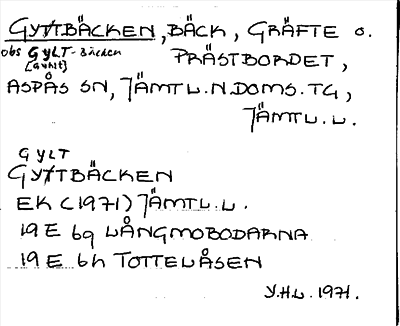 GYTTBÄCKEN, BÄCK, GRÄFTE O.
obs GYLT-BÄCKEN PRÄSTBORDET,
ASPÅS SN, JÄMTL.N.DOMS.TG,
JÄMTL.L.
GYLT
GYTTBÄCKEN
EK (1971) JÄMTL.L.
19E 6g LÅNGMOBODARNA
19E 6h TOTTELÅSEN
Y.H.L. 1971.